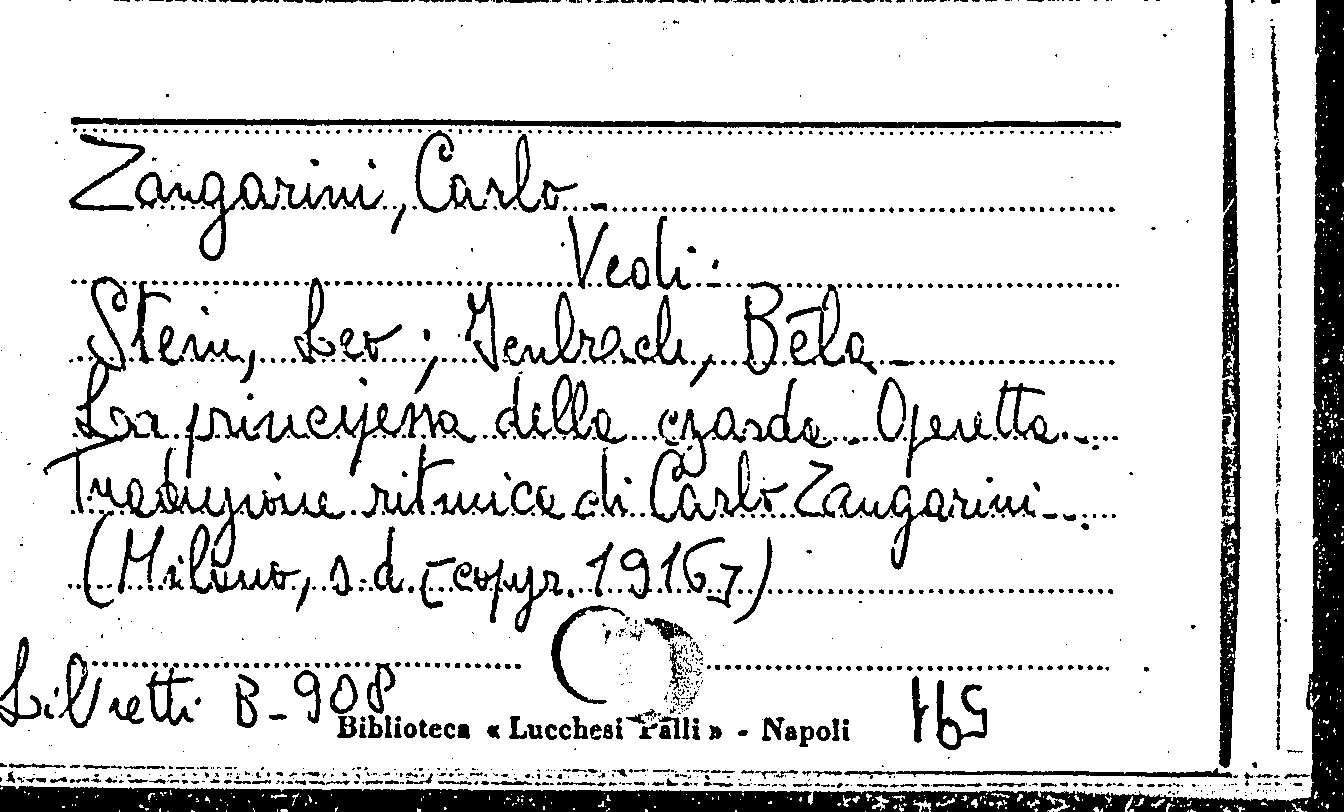 Zangarini, Carlo -
Vedi:
Stein, Leo; Jenbach, Béla -
La principessa della czarda. Operetta.
Traduzione ritmica di Carlo Zangarini.
(Milano, s.d. [copyr. 1916])
Libretti B-908
Biblioteca « Lucchesi Palli » - Napoli